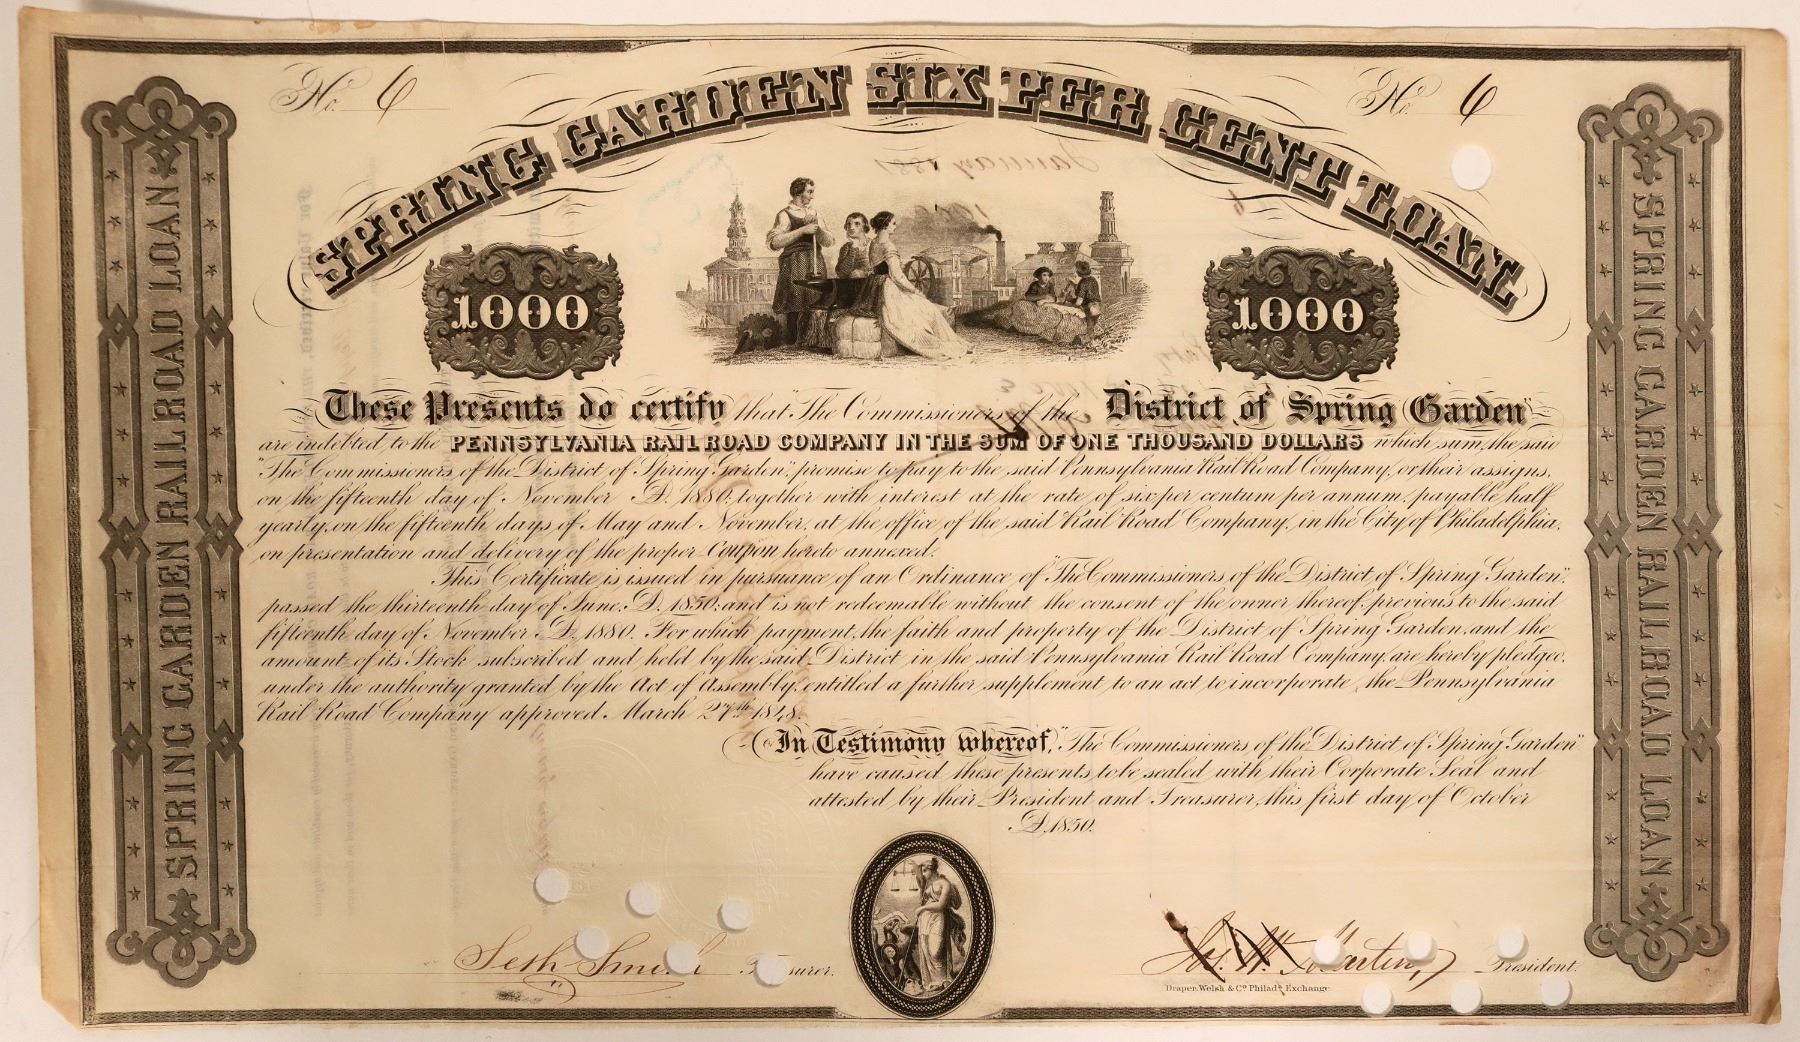 No. 6
No. 6
SPRING GARDEN SIX PER CENT LOAN
SPRING GARDEN RAILROAD LOAN
SPRING GARDEN RAILROAD LOAN
1000
1000
These Presents do certify that "The Commissioners of the District of Spring Garden"
are indebted to the PENNSYLVANIA RAIL ROAD COMPANY IN THE SUM OF ONE THOUSAND DOLLARS which sum, the said
"The Commissioners of the District of Spring Garden", promise to pay to the said Pennsylvania Rail Road Company, or their assigns,
on the fifteenth day of November A.D. 1880, together with interest at the rate of six per centum per annum, payable half
yearly, on the fifteenth days of May and November, at the office of the said Rail Road Company, in the City of Philadelphia,
on presentation and delivery of the proper Coupon hereto annexed.
This Certificate is issued in pursuance of an Ordinance of "The Commissioners of the District of Spring Garden",
passed the thirteenth day of June A.D. 1850; and is not redeemable without the consent of the owner thereof, previous to the said
fifteenth day of November A.D. 1880. For which payment, the faith and property of the District of Spring Garden, and the
amount of its Stock subscribed and held by the said District in the said Pennsylvania Rail Road Company, are hereby pledged,
under the authority granted by the Act of Assembly, entitled a further supplement to an act to incorporate the Pennsylvania
Rail Road Company approved March 27th 1848.
In Testimony whereof, "The Commissioners of the District of Spring Garden"
have caused these presents to be sealed with their Corporate Seal and
attested by their President and Treasurer, this first day of October
A.D. 1850.
Seth Smith Treasurer.
President.
Draper, Welsh & Co. Philada. Exchange